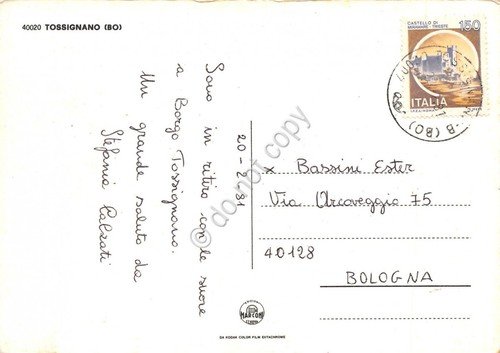 40020 TOSSIGNANO (BO)
CASTELLO DI
MIRAMARE - TRIESTE
150
ITALIA
20-2-81
Sono in ritiro con le suore
a Borgo Tossignano.
Un grande saluto da
Stefania Calzati
x Bassini Ester
Via Arcoveggio 75
40128
BOLOGNA
MARCONI
DA KODAK COLOR FILM EKTACHROME
do not copy